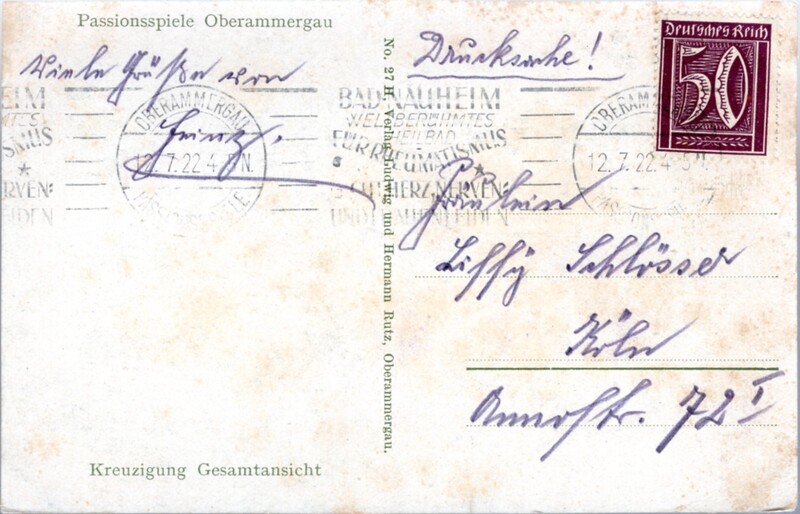 Passionsspiele Oberammergau
Viele Grüße von
Heinz.
OBERAMMERGAU
12.7.22.4-5N.
PASSIONSSPIELE
EIM
MTES
ISMUS
RVEN:
EIDEN
BAD NAUHEIM
WELTBERÜHMTES
HEILBAD
FÜR RHEUMATISMUS
GICHT HERZ-NERVEN:
UND FRAUENLEIDEN
No. 27 H. Verlag Ludwig und Hermann Rutz, Oberammergau.
Drucksache!
Deutsches Reich
50
OBERAMM
12.7.22.4-5N.
Fräulein
Liffy Schlösser
Köln
Annostr. 72 I
Kreuzigung Gesamtansicht